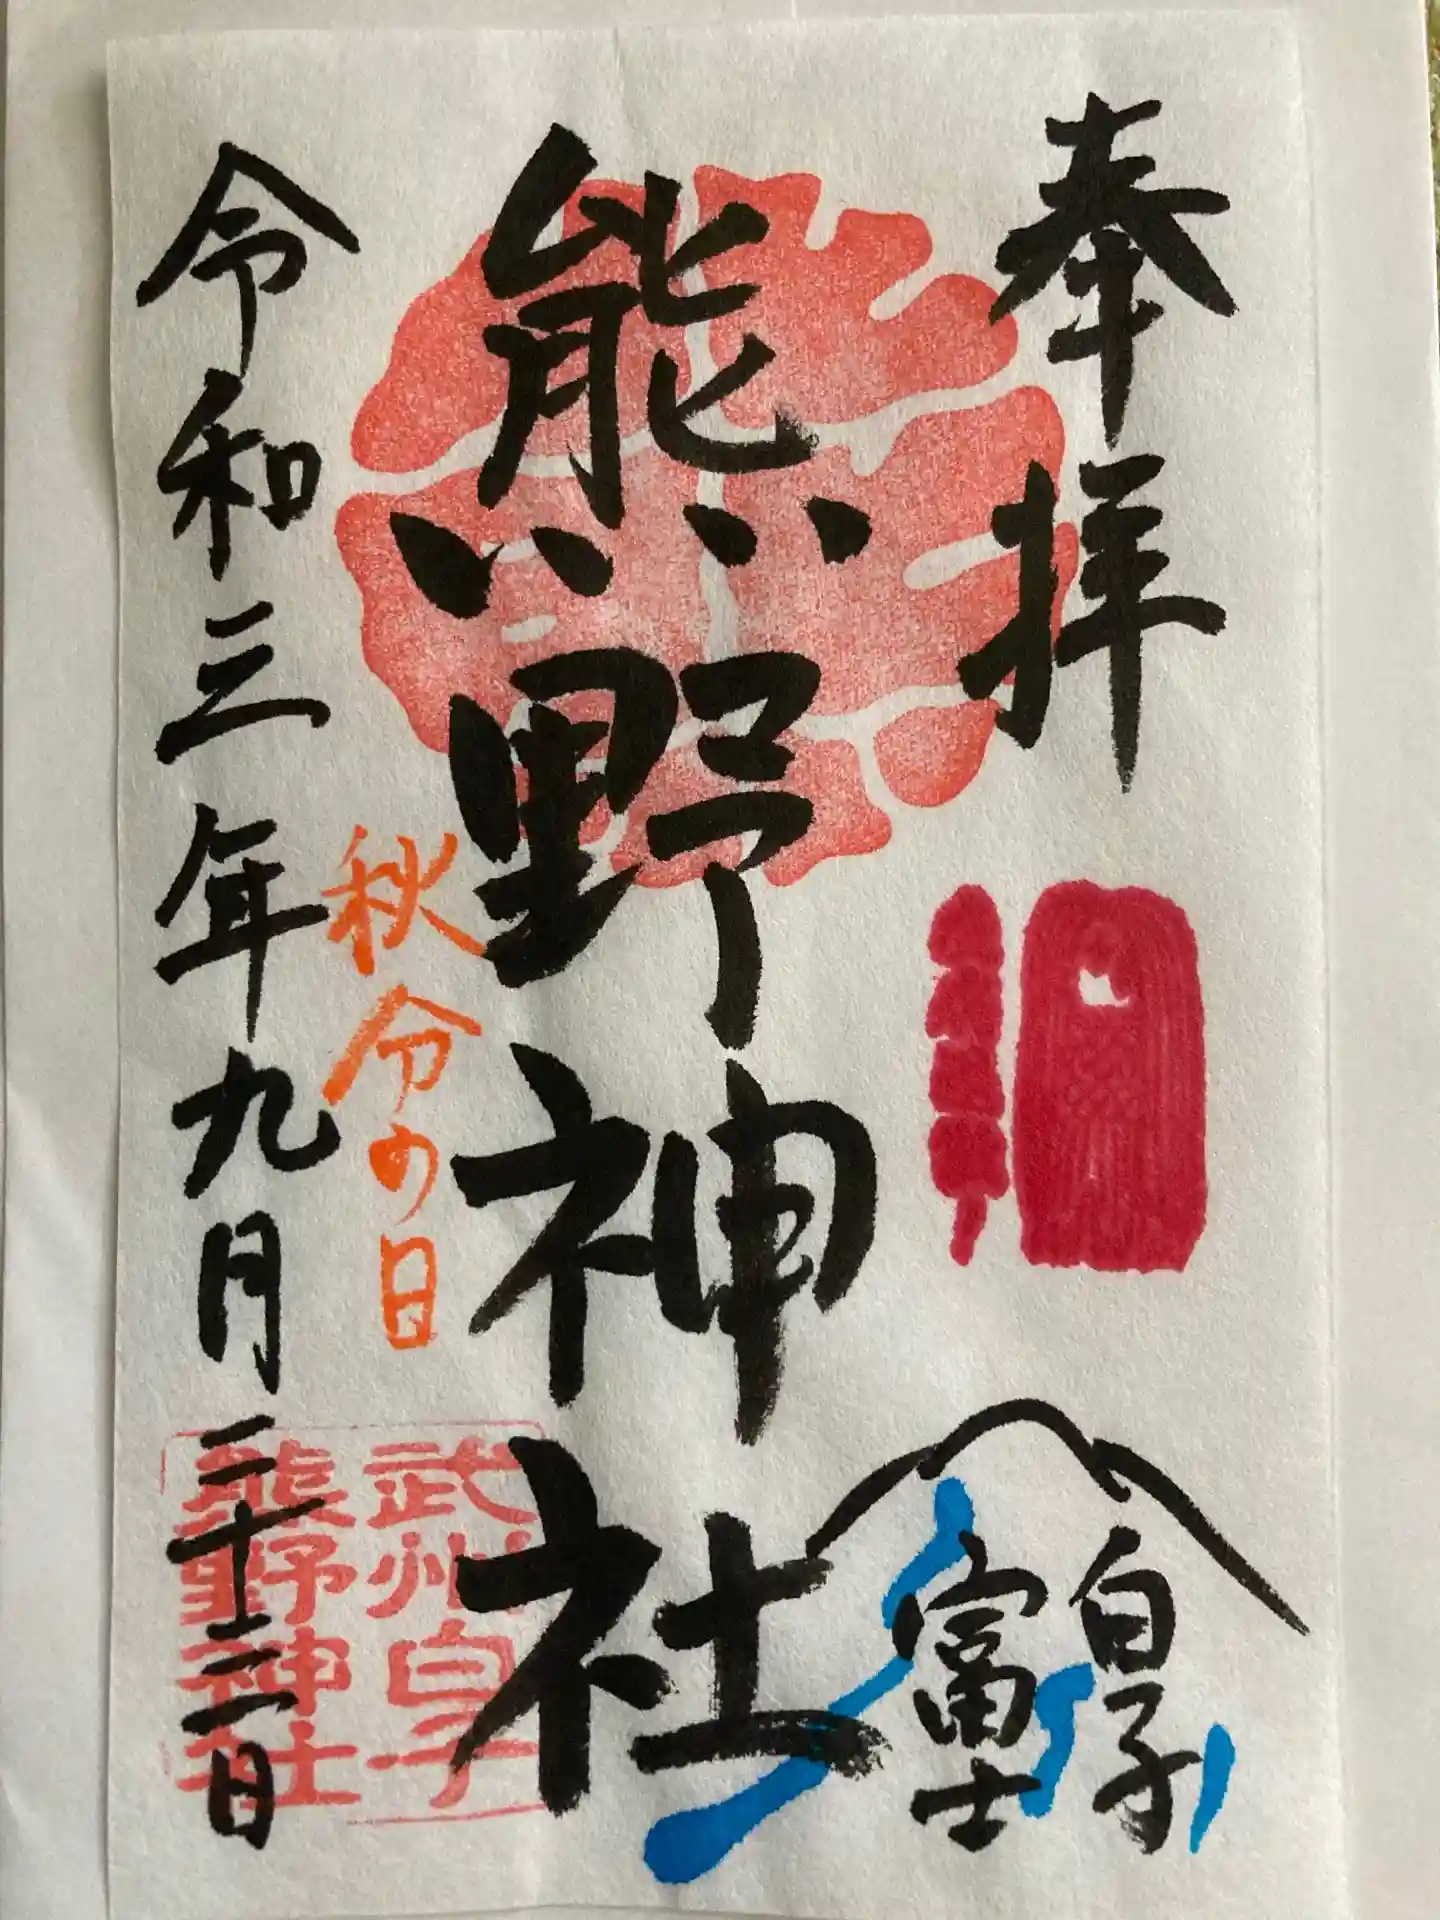 奉拝
白子
富士
熊野神社
秋分の日
令和三年九月二十三日
武州白子
熊野神社